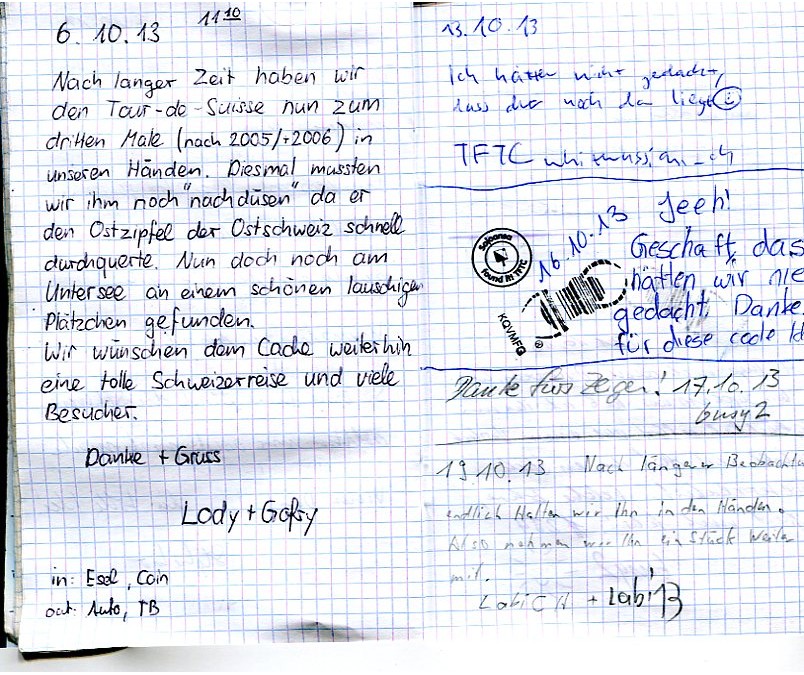 6. 10. 13 11 10
Nach langer Zeit haben wir
den Tour-de-Suisse nun zum
dritten Male (nach 2005/+2006) in
unseren Händen. Diesmal mussten
wir ihm noch "nachdüsen" da er
den Ostzipfel der Ostschweiz schnell
durchquerte. Nun doch noch am
Untersee an einem schönen lauschigen
Plätzchen gefunden.
Wir wünschen dem Cache weiterhin
eine tolle Schweizerreise und viele
Besucher.
Danke + Gruss
Lody + Gofsy
in: Esel, Coin
out: Auto, TB
13. 10. 13
Ich hätte nicht gedacht,
dass der noch da liegt
TFTC
16.10.13 Jeeh!
Geschafft, das
hätten wir nie
gedacht. Danke
für diese coole
found it! TFTC
KQVMFG
Danke fürs Zeigen! 17.10.13
busy2
19 10. 13 Nach längerer Beobachtu
endlich Halten wir Ihn in den Händen.
Also nehmen wir Ihn ein Stück weiter
mit.
LabiCH + Labi13